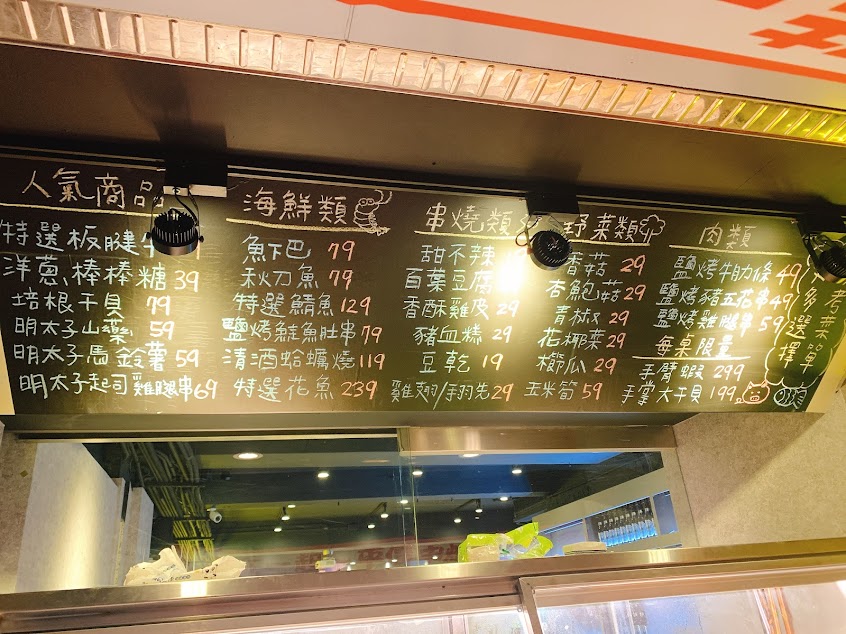 人氣商品
特選板腱牛
洋蔥棒棒糖 39
培根干貝 79
明太子山藥 59
明太子馬鈴薯 59
明太子起司雞腿串 69
海鮮類
魚下巴 79
秋刀魚 79
特選鯖魚 129
鹽烤鮭魚肚串 79
清酒蛤蠣燒 119
特選花魚 239
串燒類
甜不辣
百葉豆腐
香酥雞皮 29
豬血糕 29
豆乾 19
雞翅/手羽先 29
野菜類
香菇 29
杏鮑菇 29
青椒 29
花椰菜 29
櫛瓜 29
玉米筍 59
肉類
鹽烤牛肋條 49
鹽烤豬五花串 49
鹽烤雞腿串 59
每桌限量
手臂蝦 299
手掌大干貝 199
多考菜
選單
擇